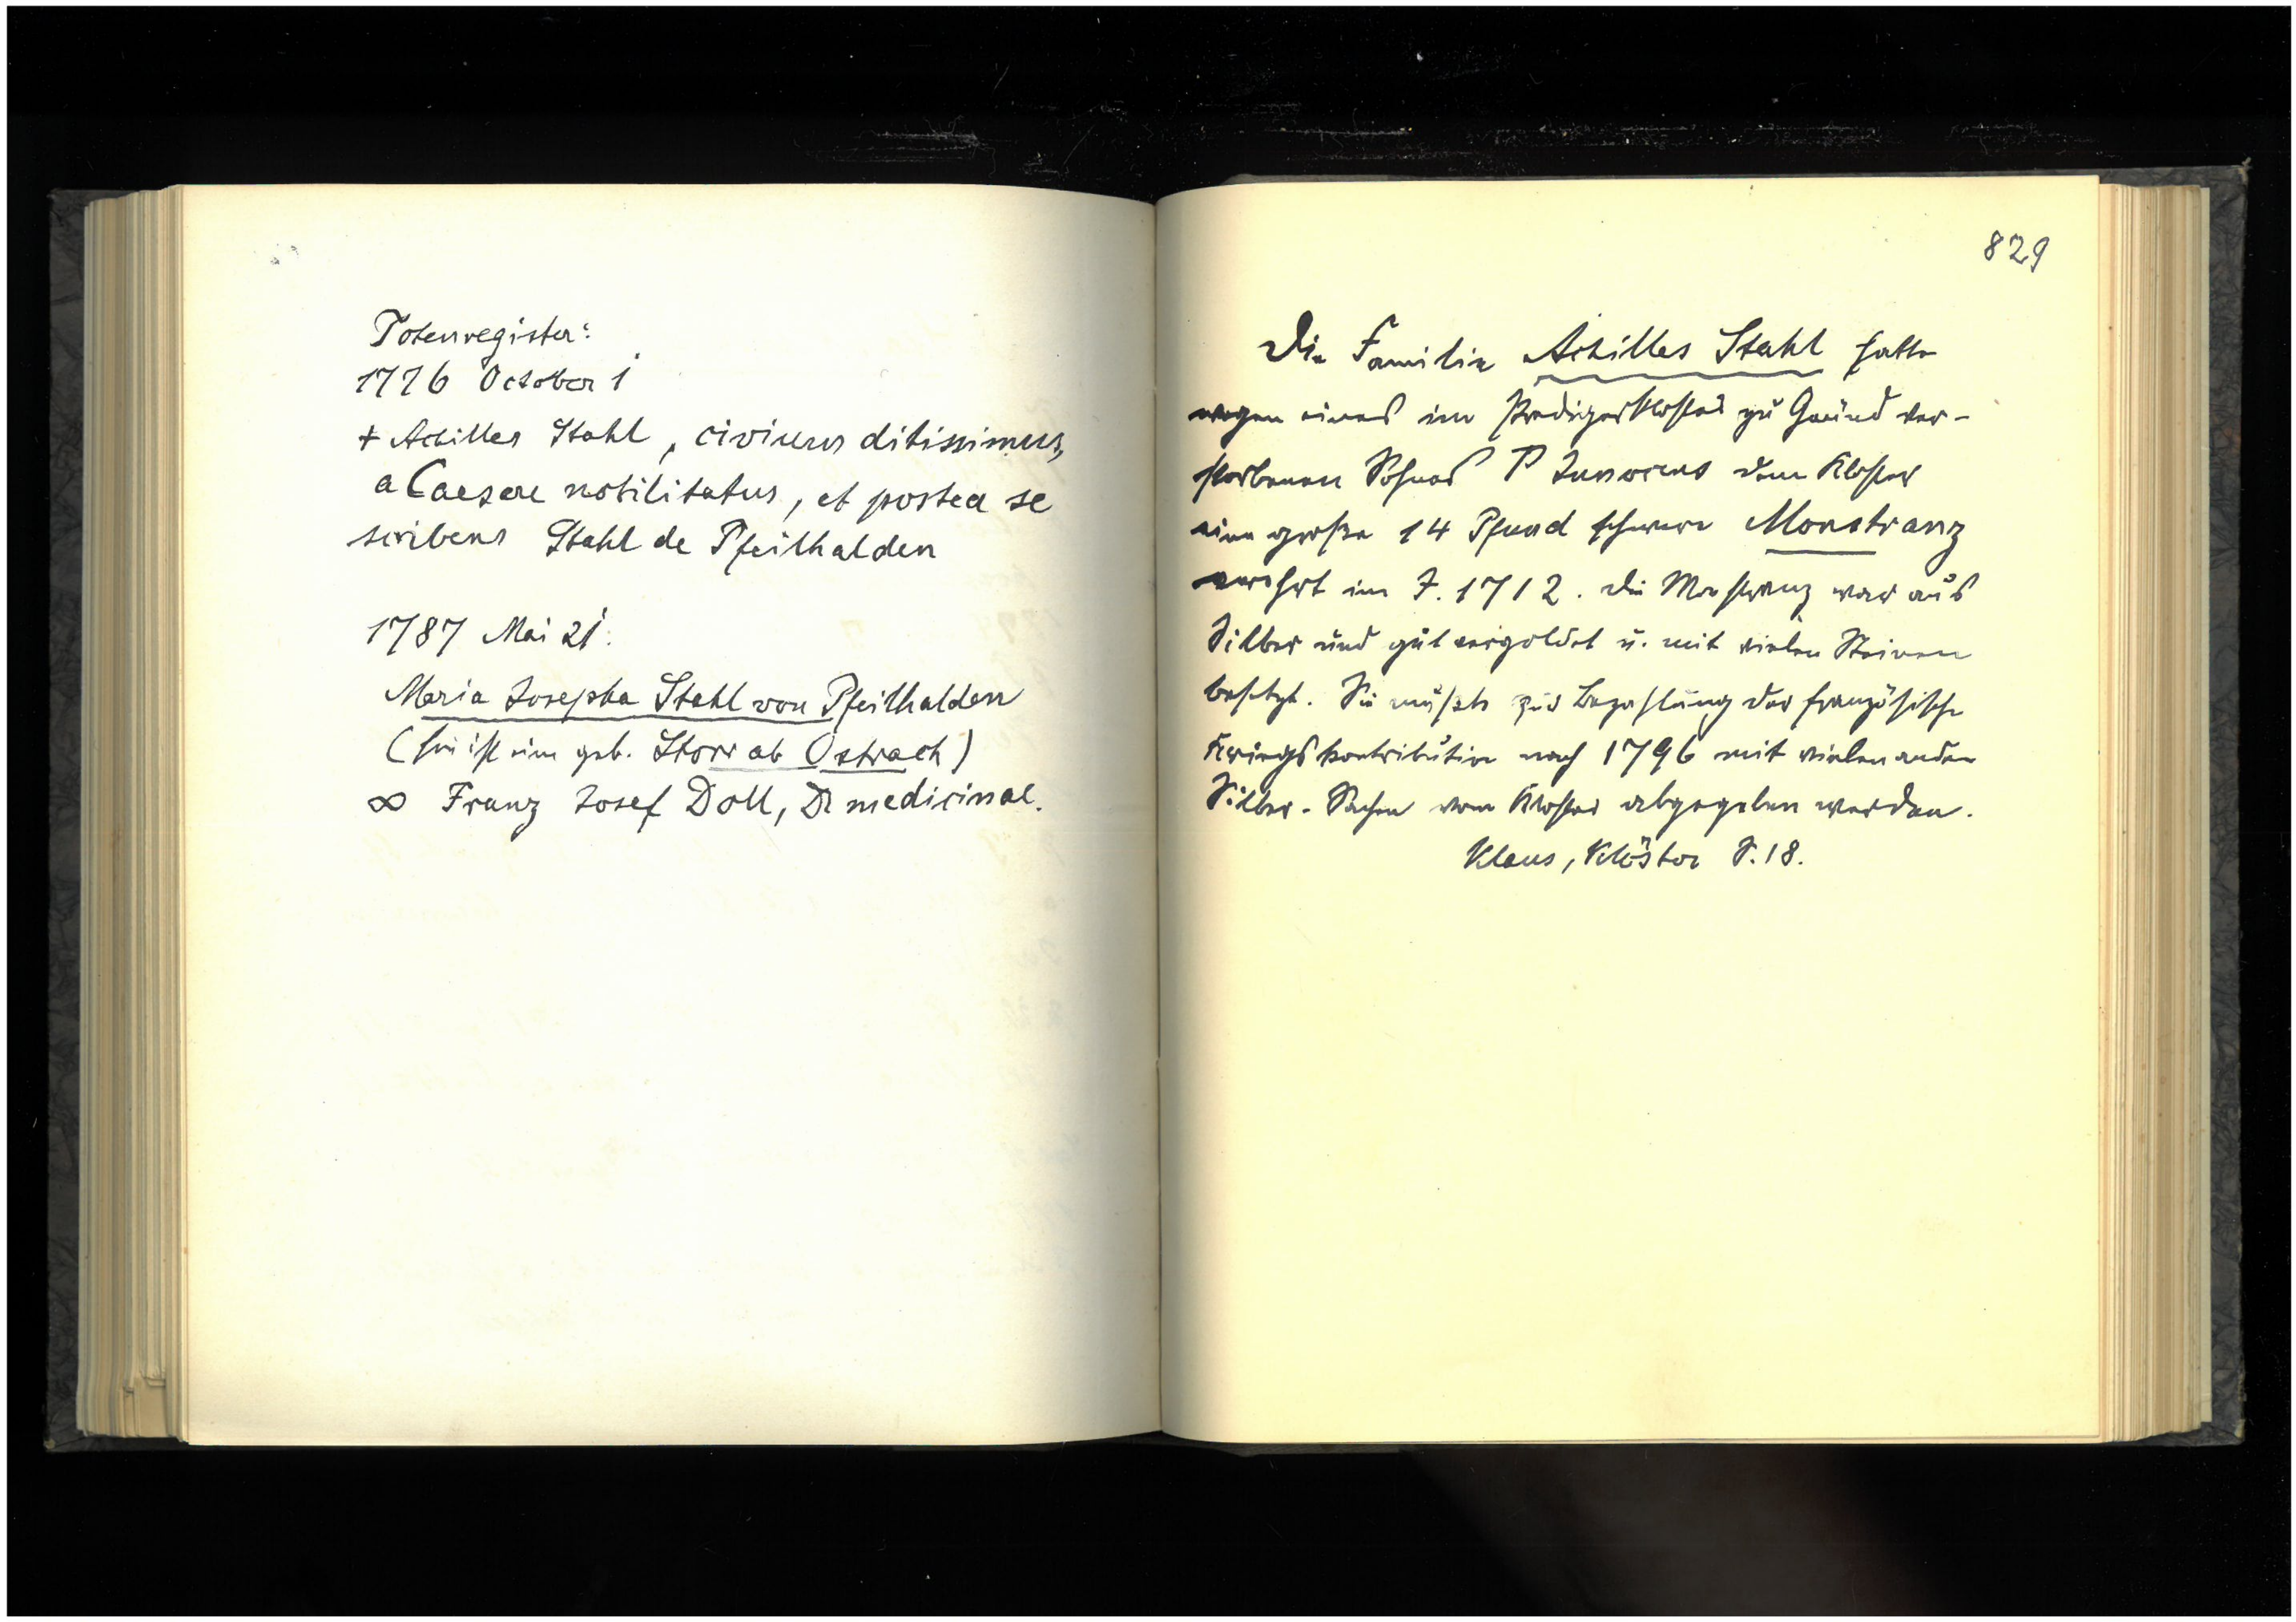 Totenregister:
1776 October 1
+ Achilles Stahl, civium ditissimus,
a Caesare nobilitatus, et postea se
scribens Stahl de Pfeilhalden
1787 Mai 21.
Maria Josepha Stahl von Pfeilhalden
(sie ist eine geb. Storr ab Ostrach)
∞ Franz Josef Doll, Dr medicinae.
829
Die Familie Achilles Stahl hatte
wegen eines im Predigerkloster zu Gmünd ver-
storbenen Sohnes P Innocens dem Kloster
eine große 14 Pfund schwere Monstranz
verehrt im J. 1712. Die Monstranz war aus
Silber und gut vergoldet u. mit vielen Steinen
besetzt. Sie mußte zur Bezahlung der französische
Kriegskontribution nach 1796 mit vielen anderen
Silber-Sachen vom Kloster abgegeben werden.
Klaus, Klöster S. 18.